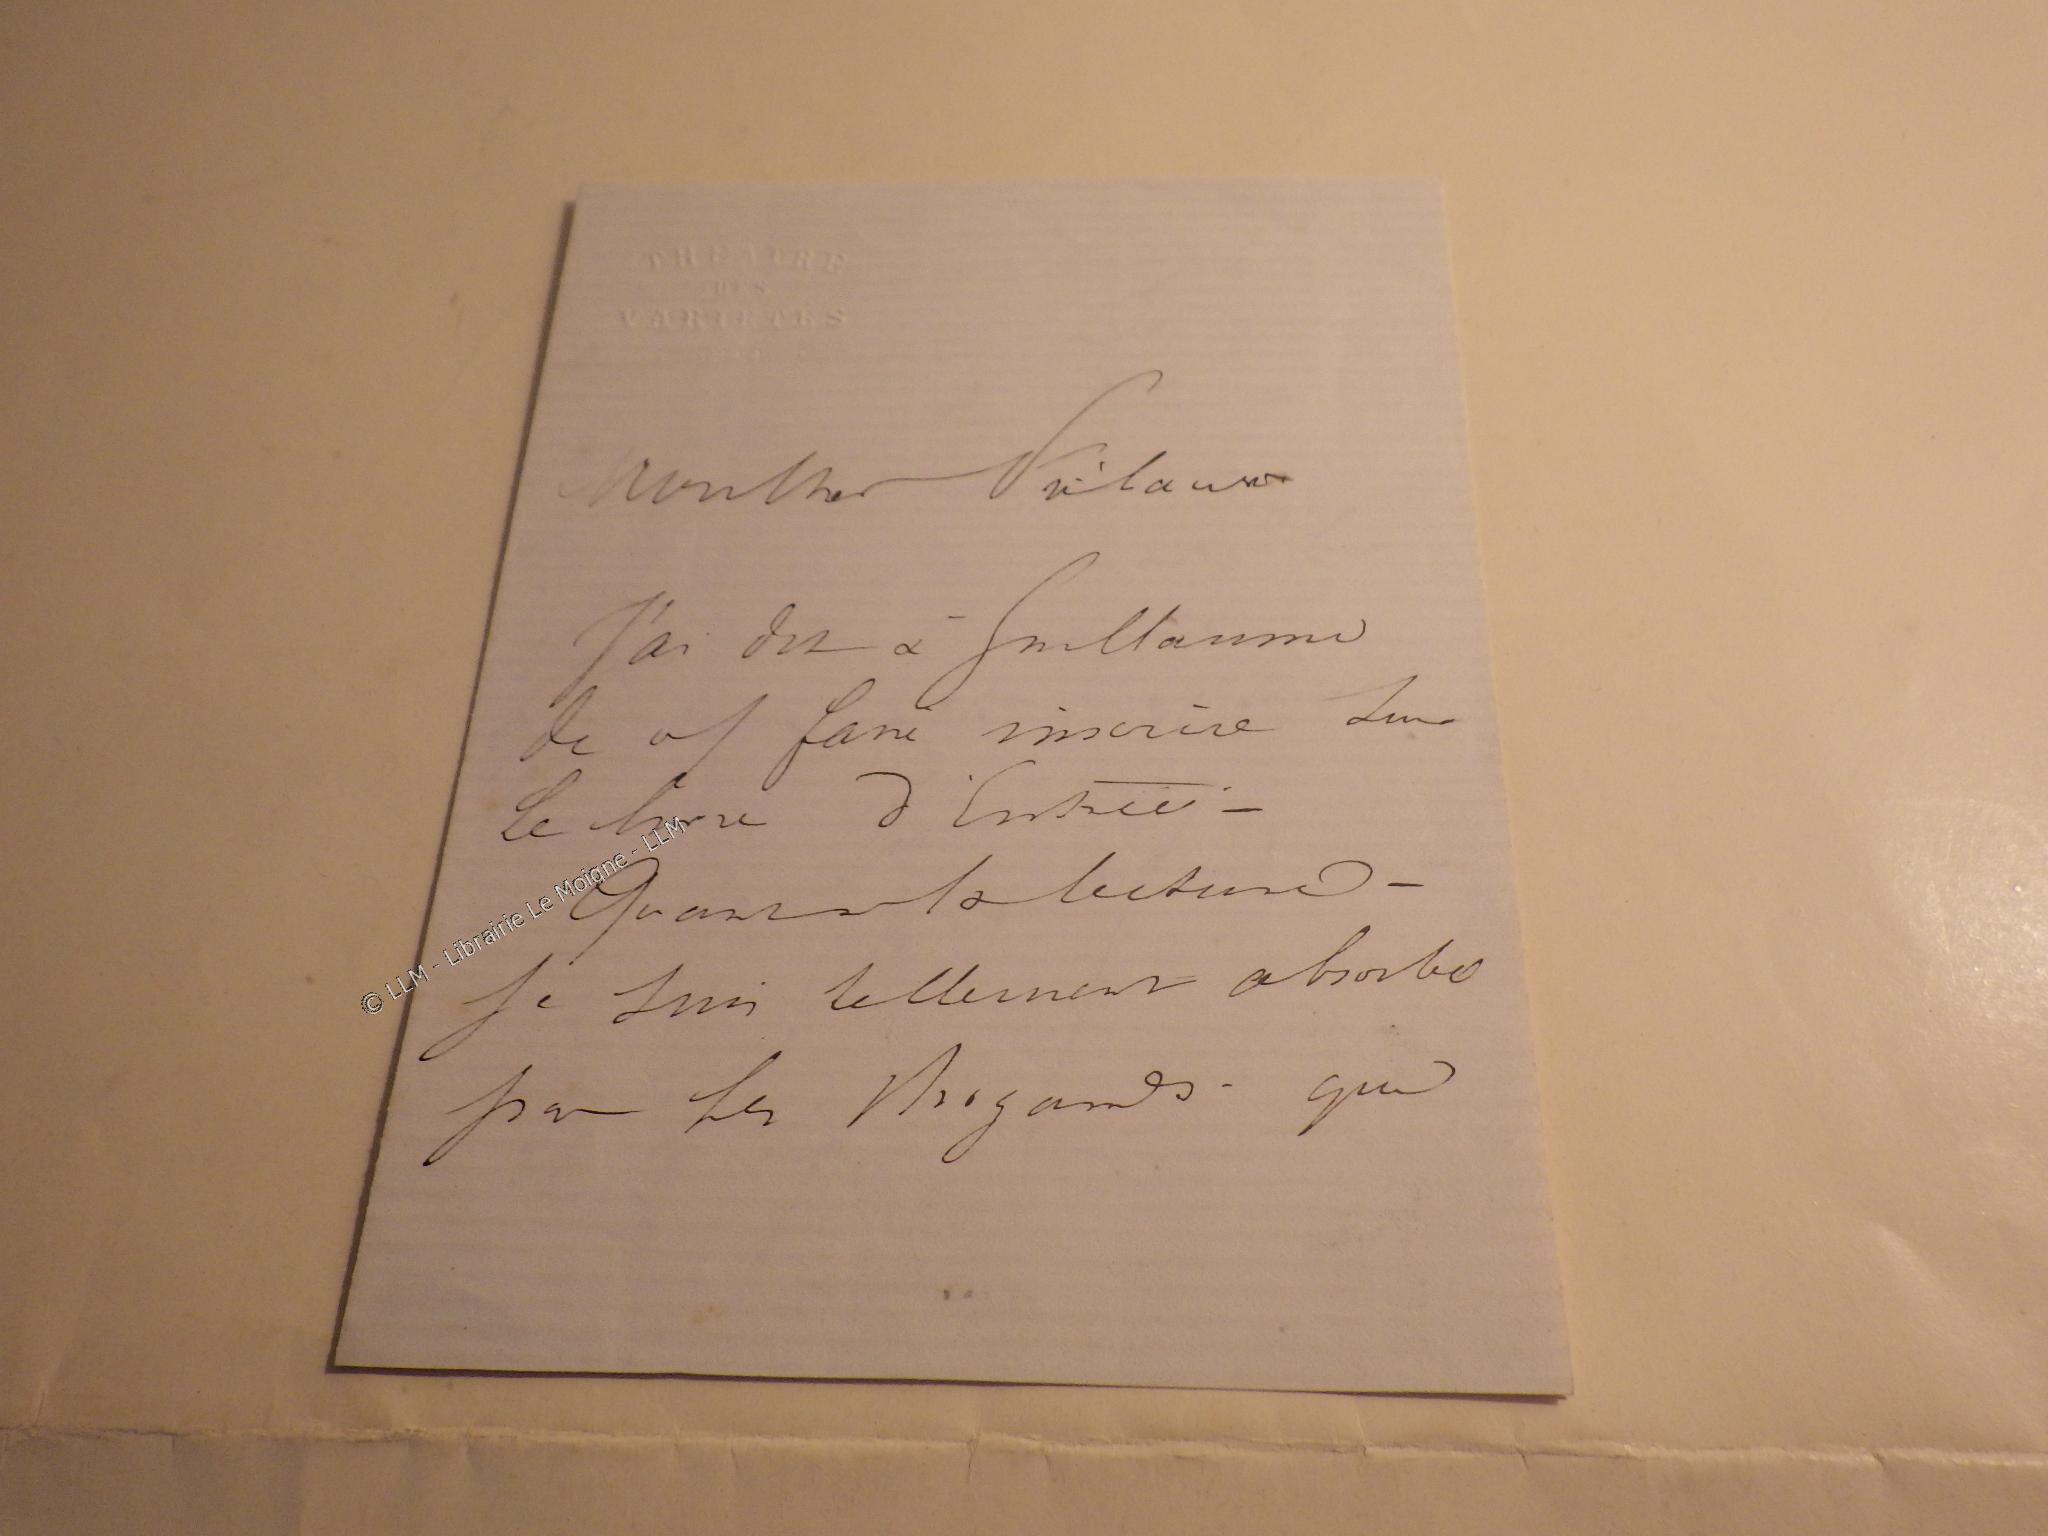 THÉATRE
DES
VARIÉTÉS
Mon cher
J'ai dit à Guillaume
de faire inscrire sur
le livre d'Entrée -
Quant à la lecture -
je suis tellement absorbé
par les Brigands - que
© LLM - Librairie Le Moigne - LLM